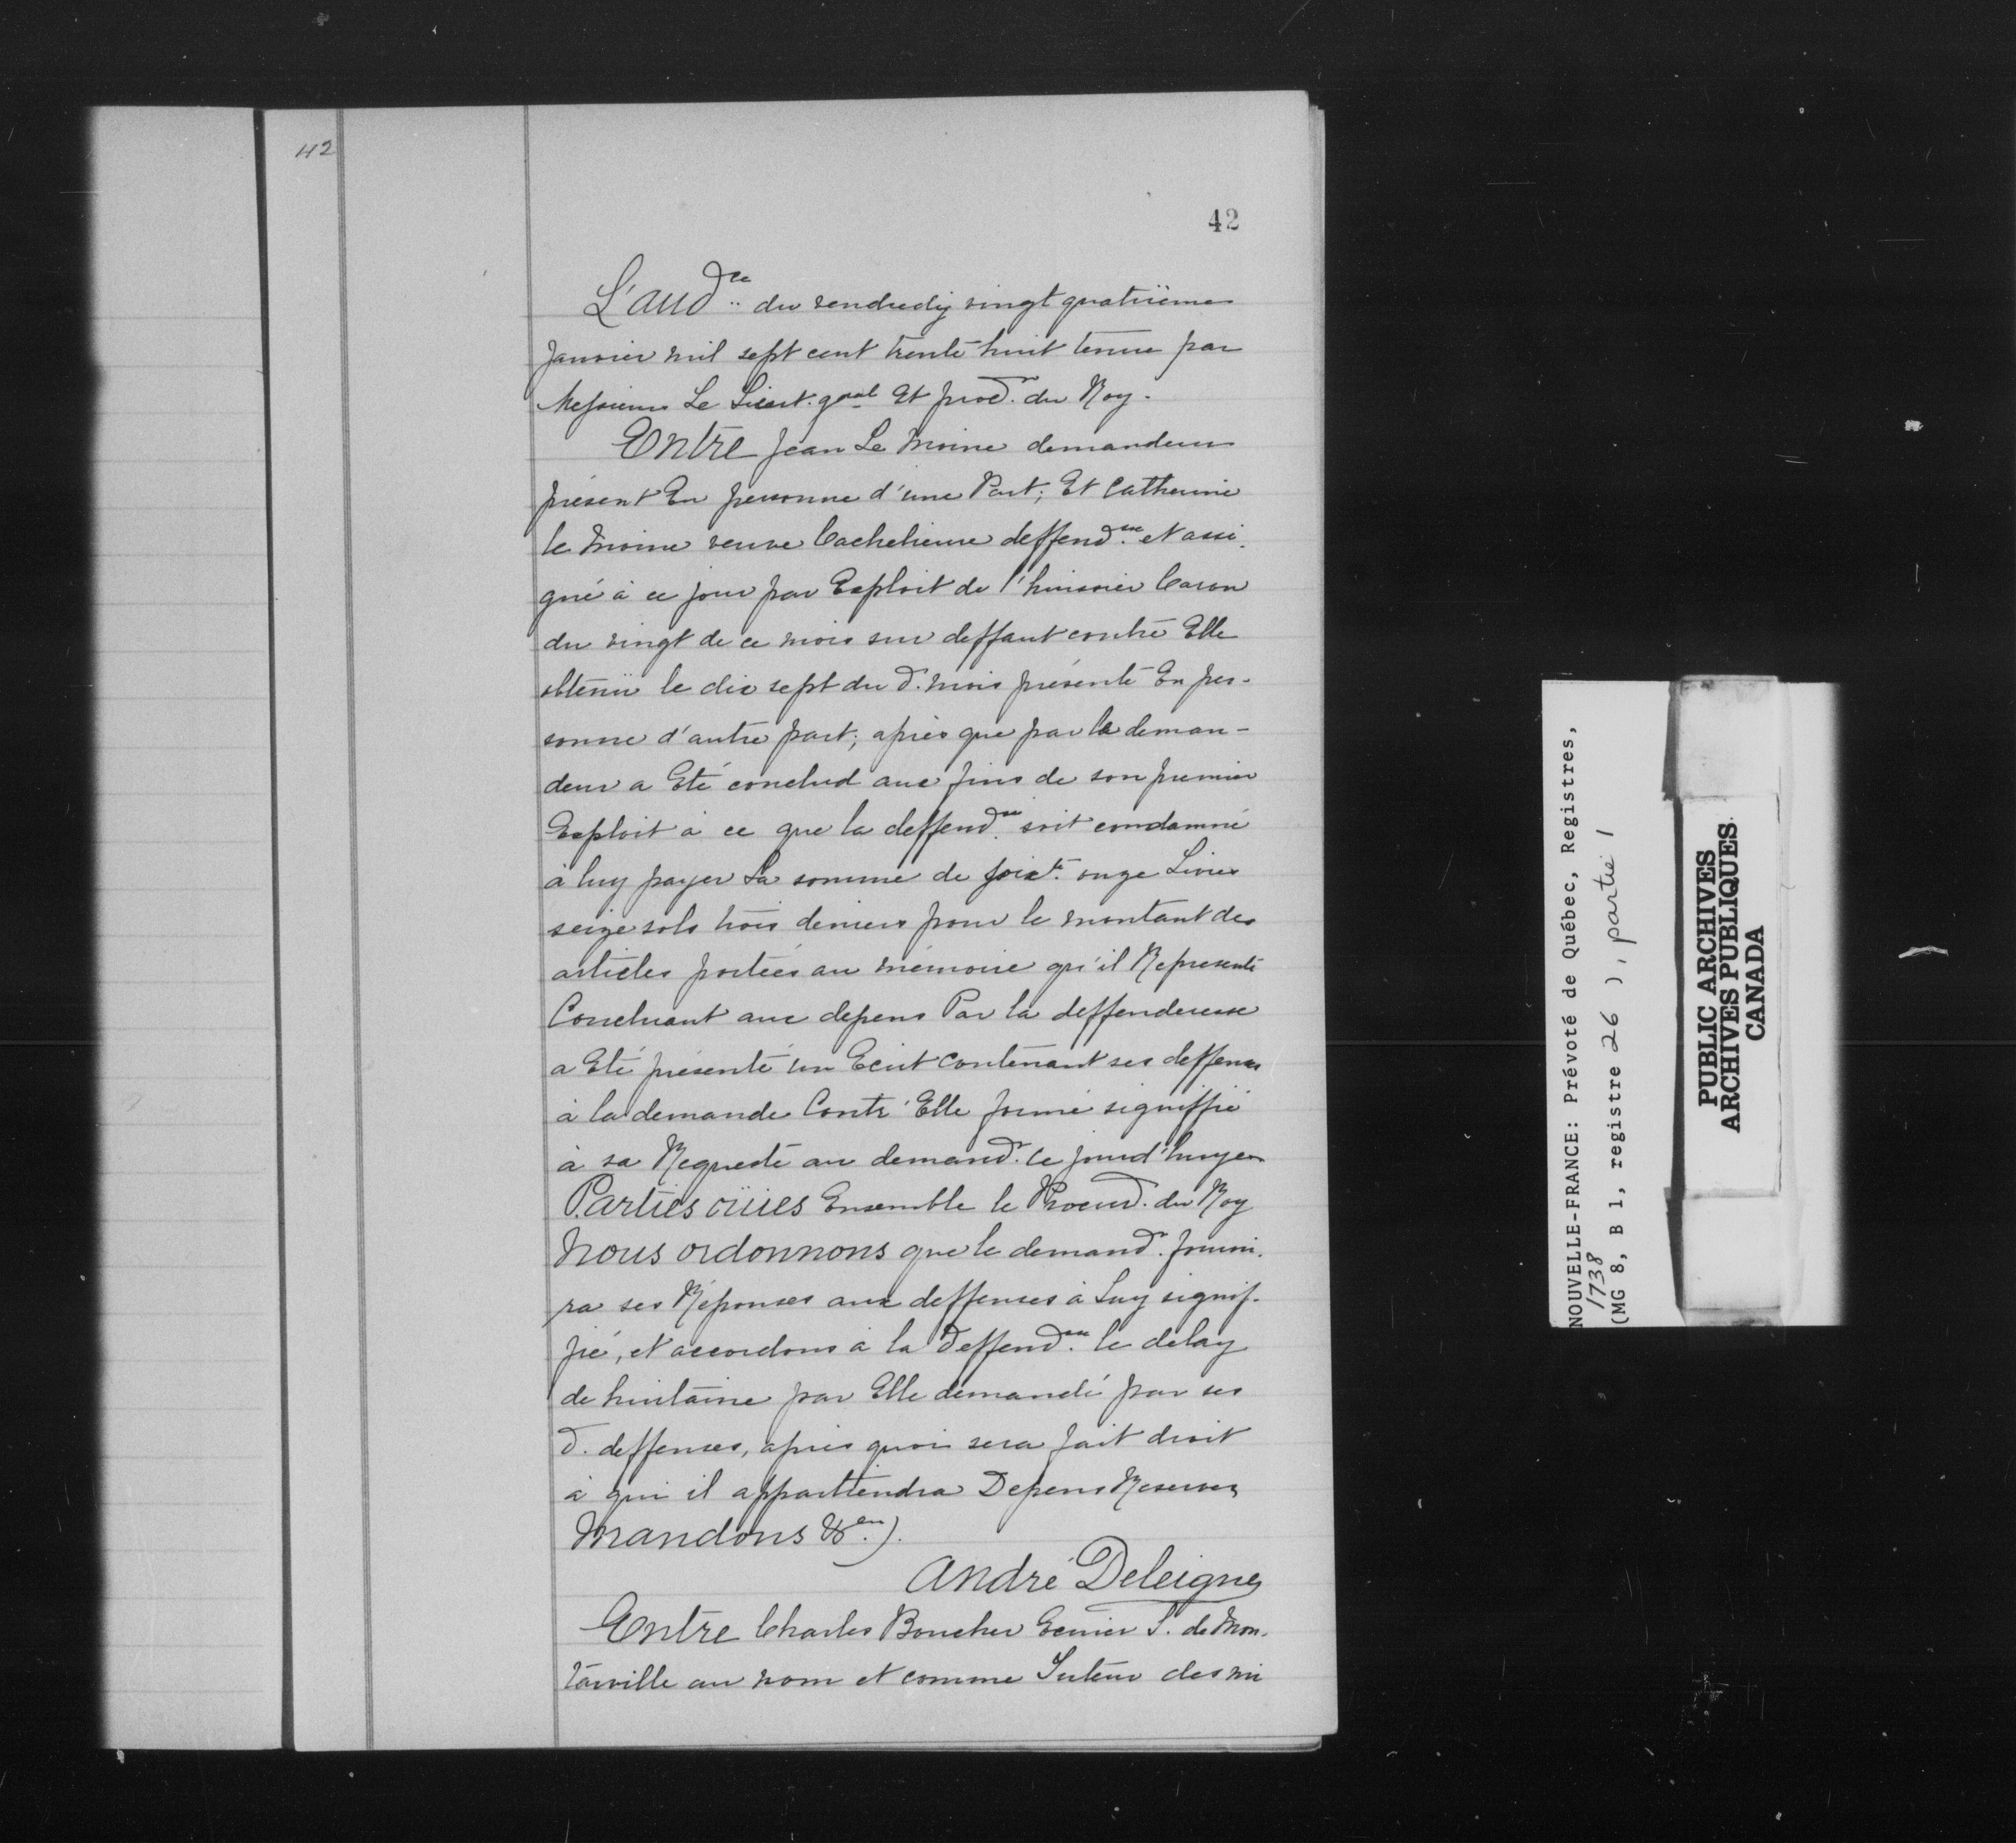 42
42
L'aud.ce du vendredy vingt quatriième
Janvier mil sept cent trente huit tenue par
Messieurs Le Lieut. gnal Et proc.r du Roy.
Entre Jean Le Moine demandeur
présent En personne d'une Part; Et Catherine
le Moine veuve Cachelieure deffend.sse et assi-
gné à ce jour par Exploit de l'huissier Caron
du vingt de ce mois sur deffaut contre Elle
obtenü le dix sept du d. mois présente En per-
sonne d'autre part; après que par le deman-
deur a Eté conclud aux fins de son premier
Exploit à ce que la deffend.sse soit condamné
à luy payer La somme de soixte onze Livres
seize sols trois deniers pour le montant des
articles portées au mémoire qu'il Represente
Concluant aux depens Par la deffenderesse
a Eté présenté un Ecrit contenant ses deffenses
à la demande Contr'Elle formé signiffié
à sa Requeste au demand.r ce jourd'huyer
Parties oüies Ensemble le Procur.r du Roy
Nous ordonnons que le demand.r fourni-
ra ses Réponses aux deffenses à Luy signif-
fié, et accordons à la Deffend.sse le delay
de huitaine par Elle demandé par ses
d. deffenses, après quoi sera fait droit
à qui il appartiendra Depens Reservez
Mandons &.en).
André Deleigne
Entre Charles Boucher Ecuier S. de Mon-
tarville au nom et comme Tuteur des mi
NOUVELLE-FRANCE: Prévoté de Québec, Registres,
1738
(MG 8, B 1, registre 26 ), partie 1
PUBLIC ARCHIVES
ARCHIVES PUBLIQUES
CANADA